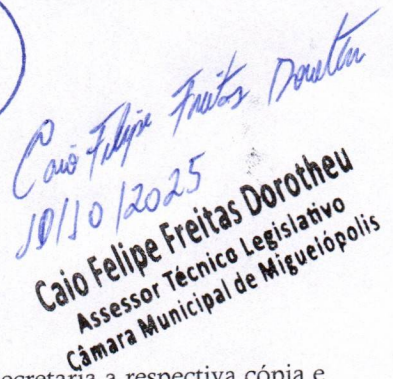 Caio Felipe Freitas Dorotheu
10/10/2025
Caio Felipe Freitas Dorotheu
Assessor Técnico Legislativo
Câmara Municipal de Miguelópolis
ecretaria a respectiva cópia e